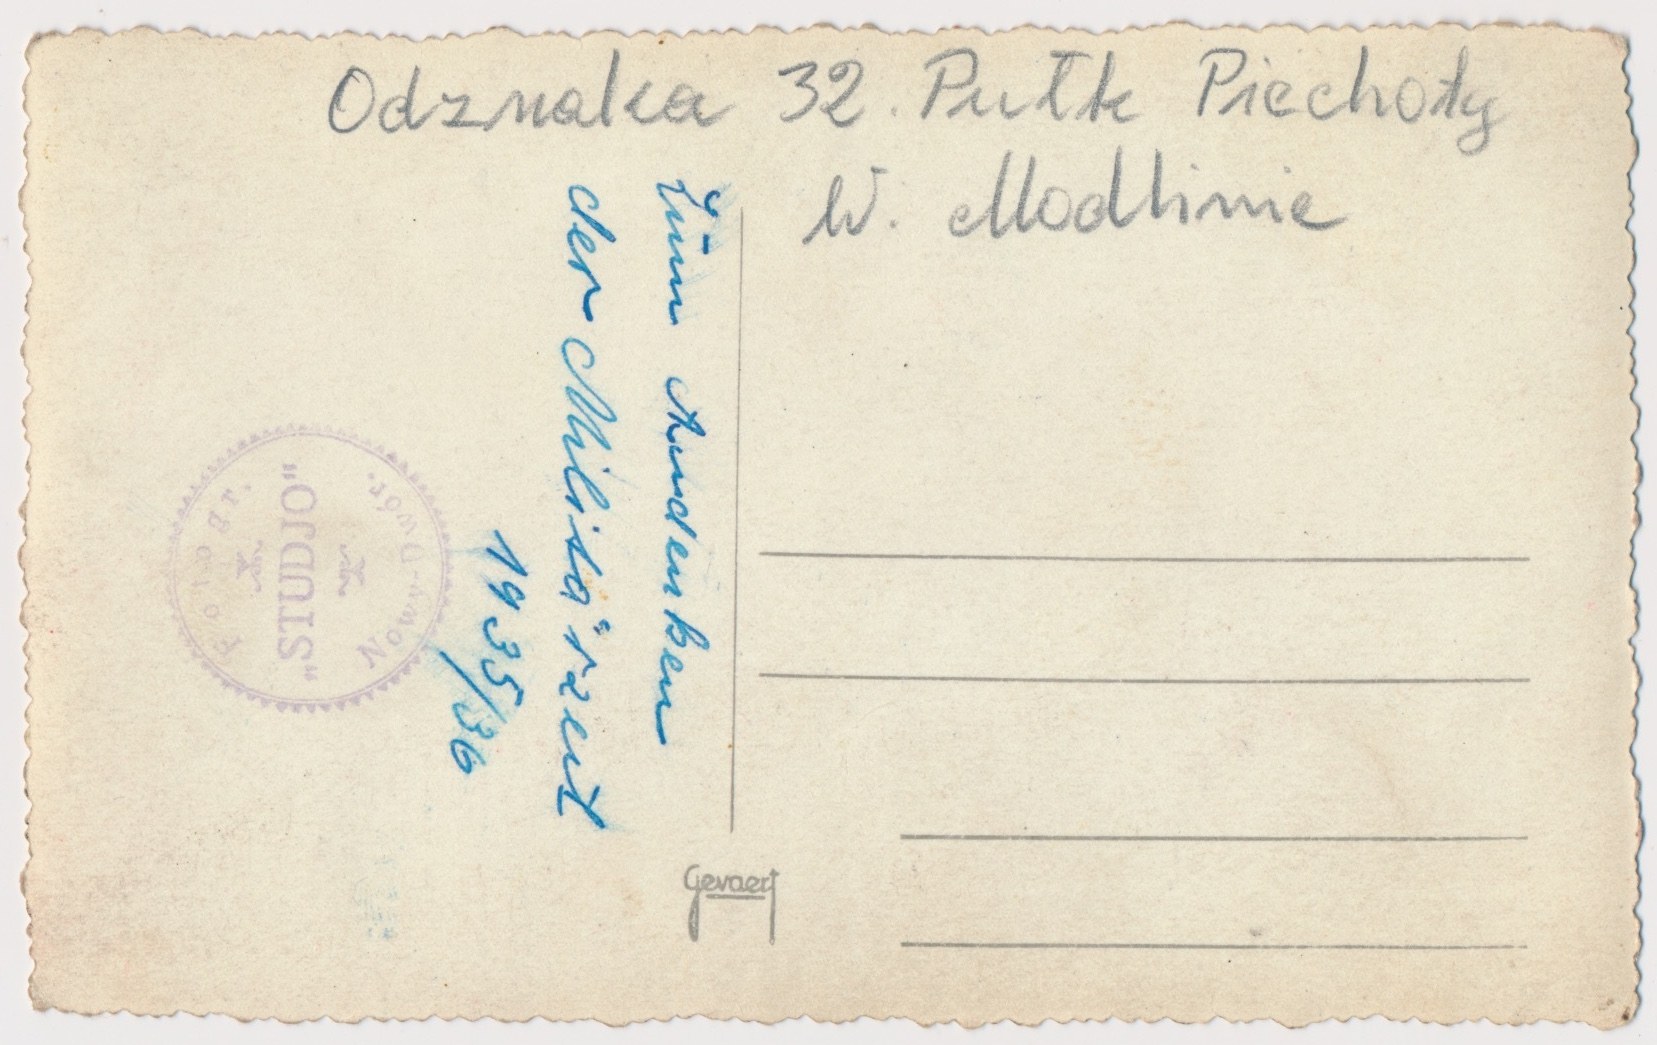 Odznaka 32. Pułk Piechoty
W. Modlinie
Zum Andenken
der Militärzeit
1935/36
Fotogr.
"STUDJO"
Nowy-Dwór.
Gevaert